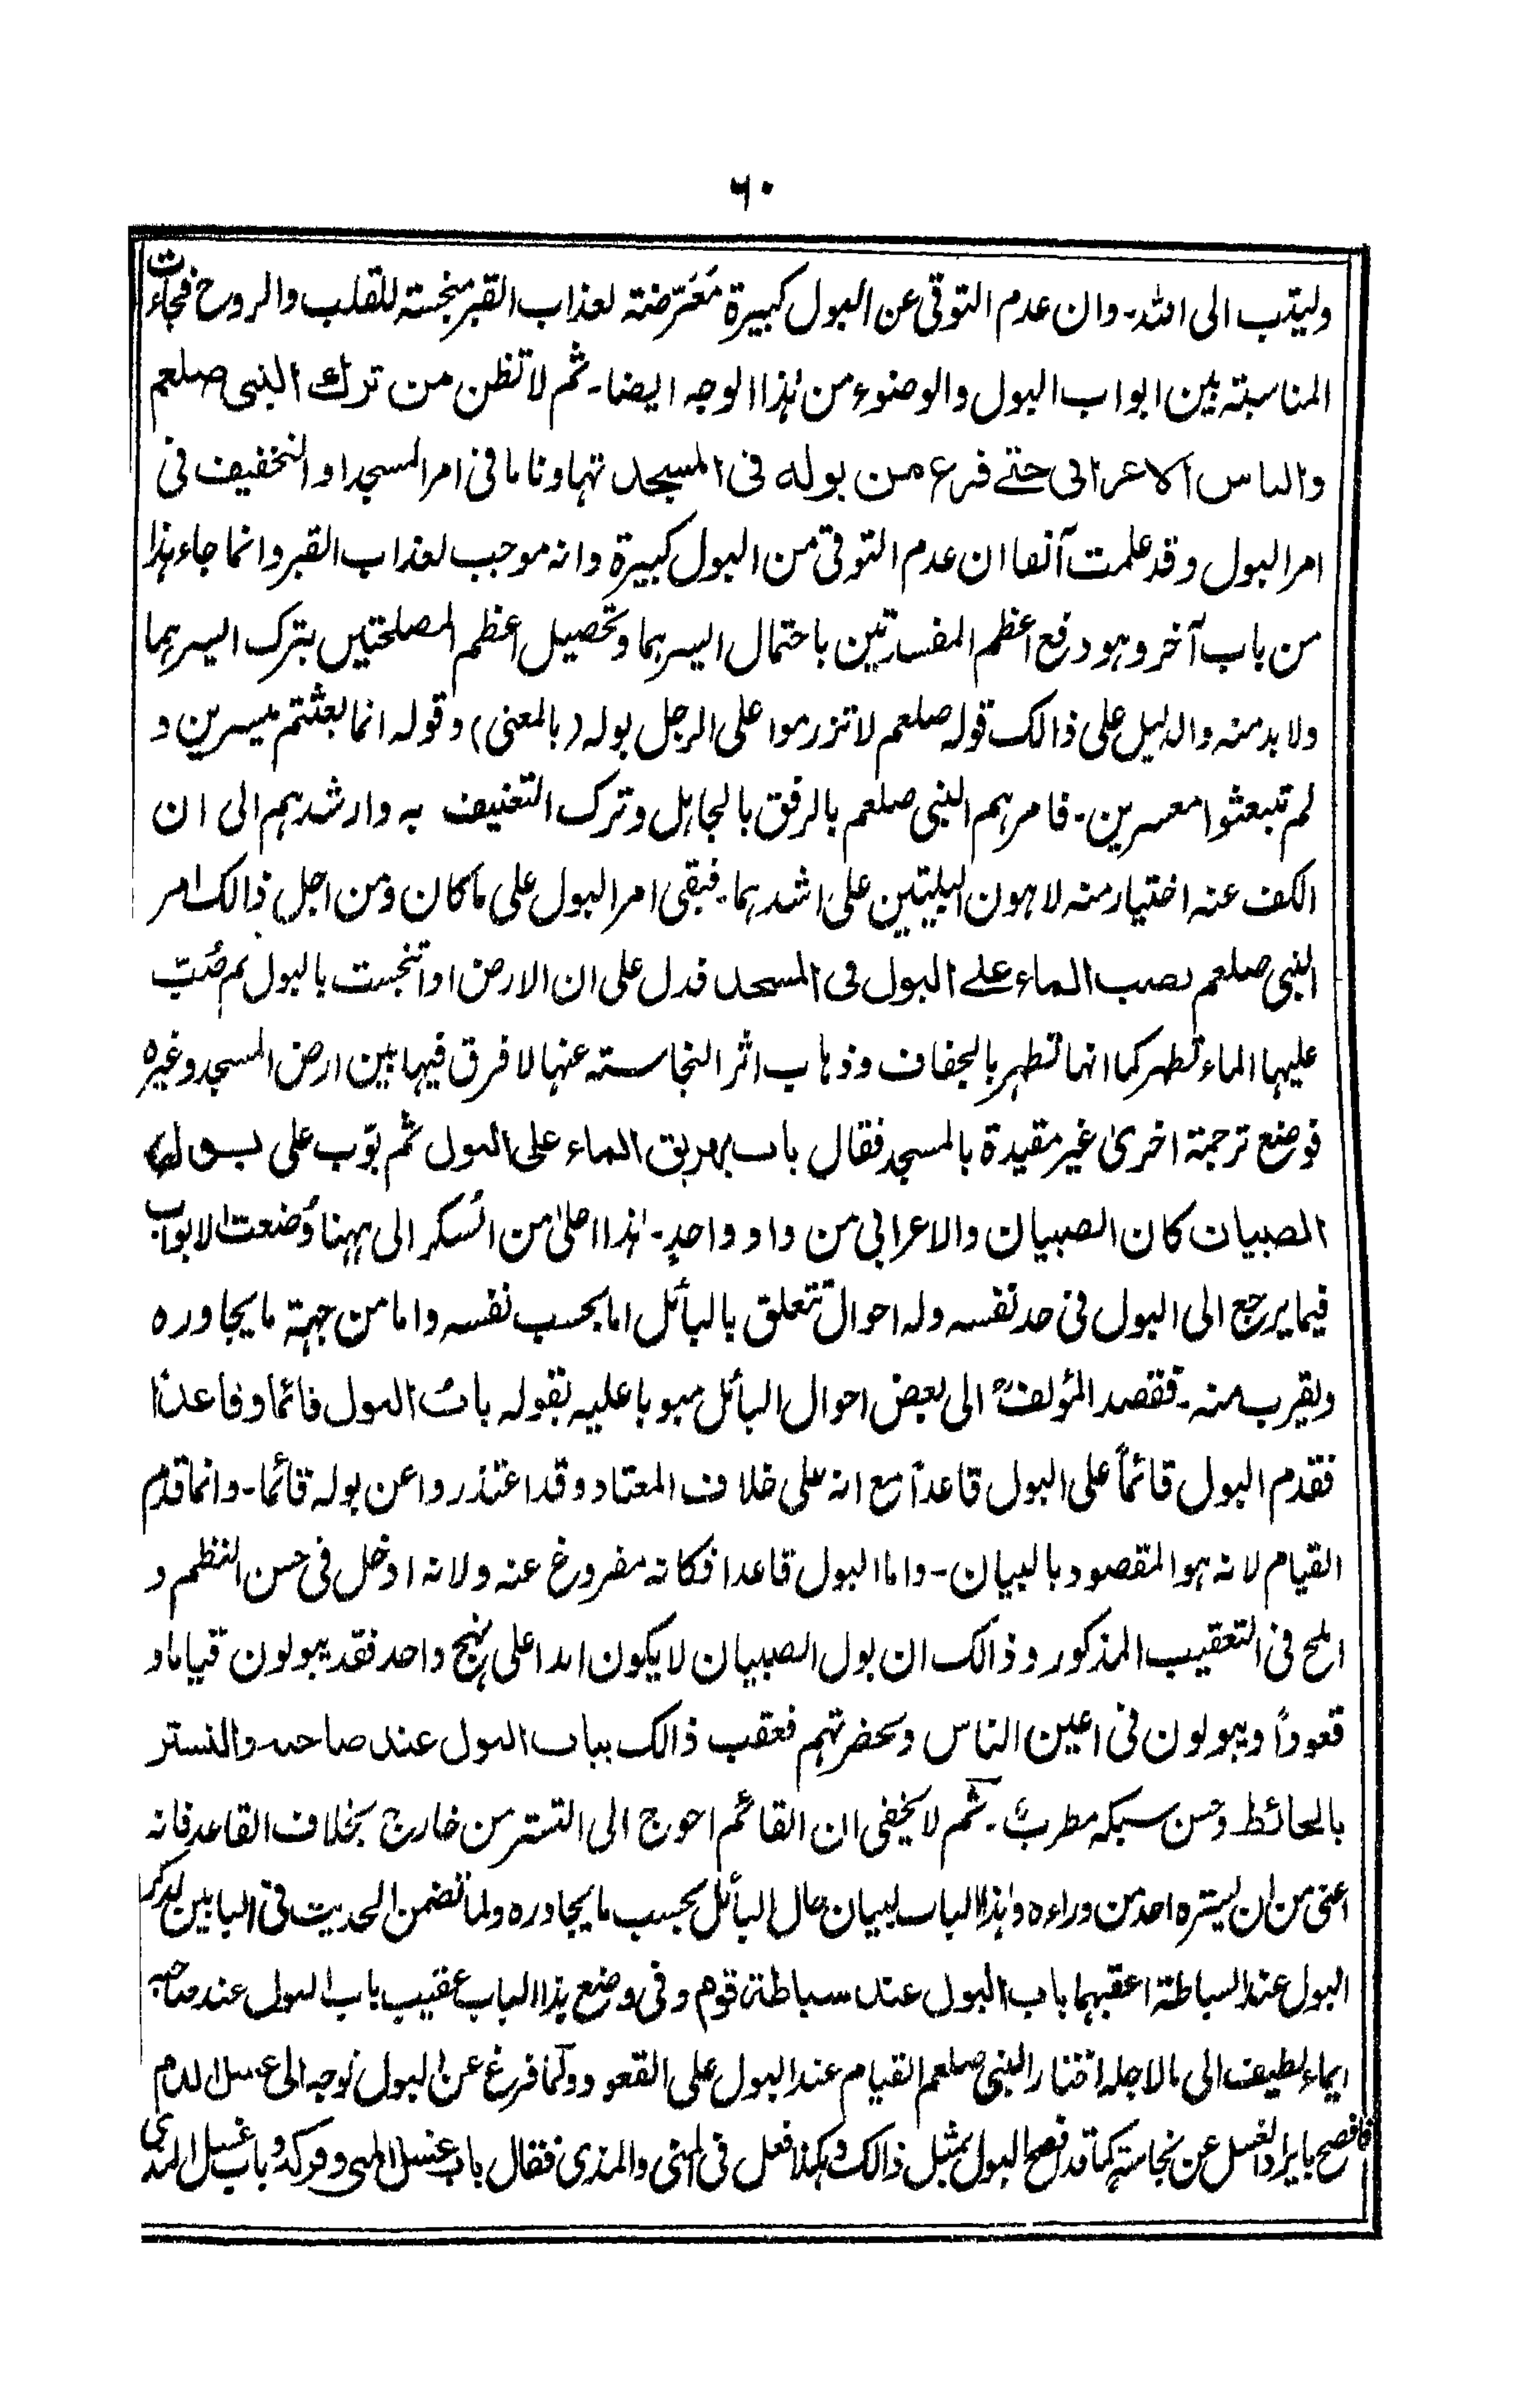 ٦٠
وليتب الى الله۔ وان عدم التوقى عن البول كبيرة مُعَرِّضة لعذاب القبر منجسة للقلب والروح فجاءت
المناسبة بين ابواب البول والوضوء من هٰذا الوجه ايضا۔ ثم لا تظن من ترك النبى صلعم
والناس الاعرابى حتے فرغ من بوله فى المسجد تهاونا ما فى امر المسجد او التخفيف فى
امر البول وقد علمت آنفا ان عدم التوقى من البول كبيرة وانه موجب لعذاب القبر وانما جاء هذا
من باب آخر وهو دفع اعظم المفسدتين باحتمال ايسرهما وتحصيل اعظم المصلحتين بترك ايسرهما
ولا بد منه والدليل على ذالك قوله صلعم لا تزرموا على الرجل بوله (بالمعنى) وقوله انما بعثتم ميسرين و
لم تبعثوا معسرين۔ فامرهم النبى صلعم بالرفق بالجاهل وترك التعنيف به وارشدهم الى ان
الكف عنه اختيار منه لاهون البليتين على اشدهما۔ فبقى امر البول على ما كان ومن اجل ذالك امر
النبى صلعم بصب الماء علے البول فى المسجد فدل على ان الارض اذا تنجست بالبول ثم صُبّ
عليها الماء تطهر كما انها تطهر بالجفاف وذهاب اثر النجاسة عنها لا فرق فيها بين ارض المسجد وغيره
فوضع ترجمة اخرىٰ غير مقيدة بالمسجد فقال باب يهريق الماء على البول ثم بوّب على بول
الصبيان كان الصبيان والاعرابى من واد واحدٍ۔ هٰذا احلىٰ من السُكر الى ههنا وُضعت الابواب
فيما يرجع الى البول فى حد نفسه وله احوال تتعلق بالبائل اما بحسب نفسه واما من جهة ما يجاوره
ويقرب منه۔ فقصد المؤلفؒ الى بعض احوال البائل مبوبا عليه بقوله بابُ البول قائما وقاعدًا
فقدم البول قائماً على البول قاعداً مع انه على خلاف المعتاد وقد اعتذروا عن بوله قائما۔ وانما قدم
القيام لانه هو المقصود بالبيان۔ واما البول قاعدا فكانه مفروغ عنه ولانه ادخل فى حسن النظم و
املح فى التعقيب المذكور وذالك ان بول الصبيان لا يكون ابدا على نهج واحد فقد يبولون قياما و
قعوداً ويبولون فى اعين الناس وبحضرتهم فعقب ذالك بباب البول عند صاحبه والتستر
بالحائط وحسن سبكه مطربٌ۔ ثم لا يخفى ان القائم احوج الى التستر من خارج بخلاف القاعد فانه
اغنى من ان يستره احد من وراءه وهٰذا الباب لبيان حال البائل بحسب ما يجاوره ولما تضمن الحديث فى البابين لذكر
البول عند السباطة اعقبهما باب البول عند سباطة قوم وفى وضع هذا الباب عقيب باب البول عند صاحبه
ايماء لطيف الى ما لاجله اختار النبى صلعم القيام عند البول على القعود ولما فرغ عن البول توجه الى غسل الدم
فافصح بايراد الغسل عن نجاسته كما قد فصح البول بمثل ذالك وهكذا فعل فى المنى والمذى فقال باب غسل المنى وفركه وباب غسل المذى